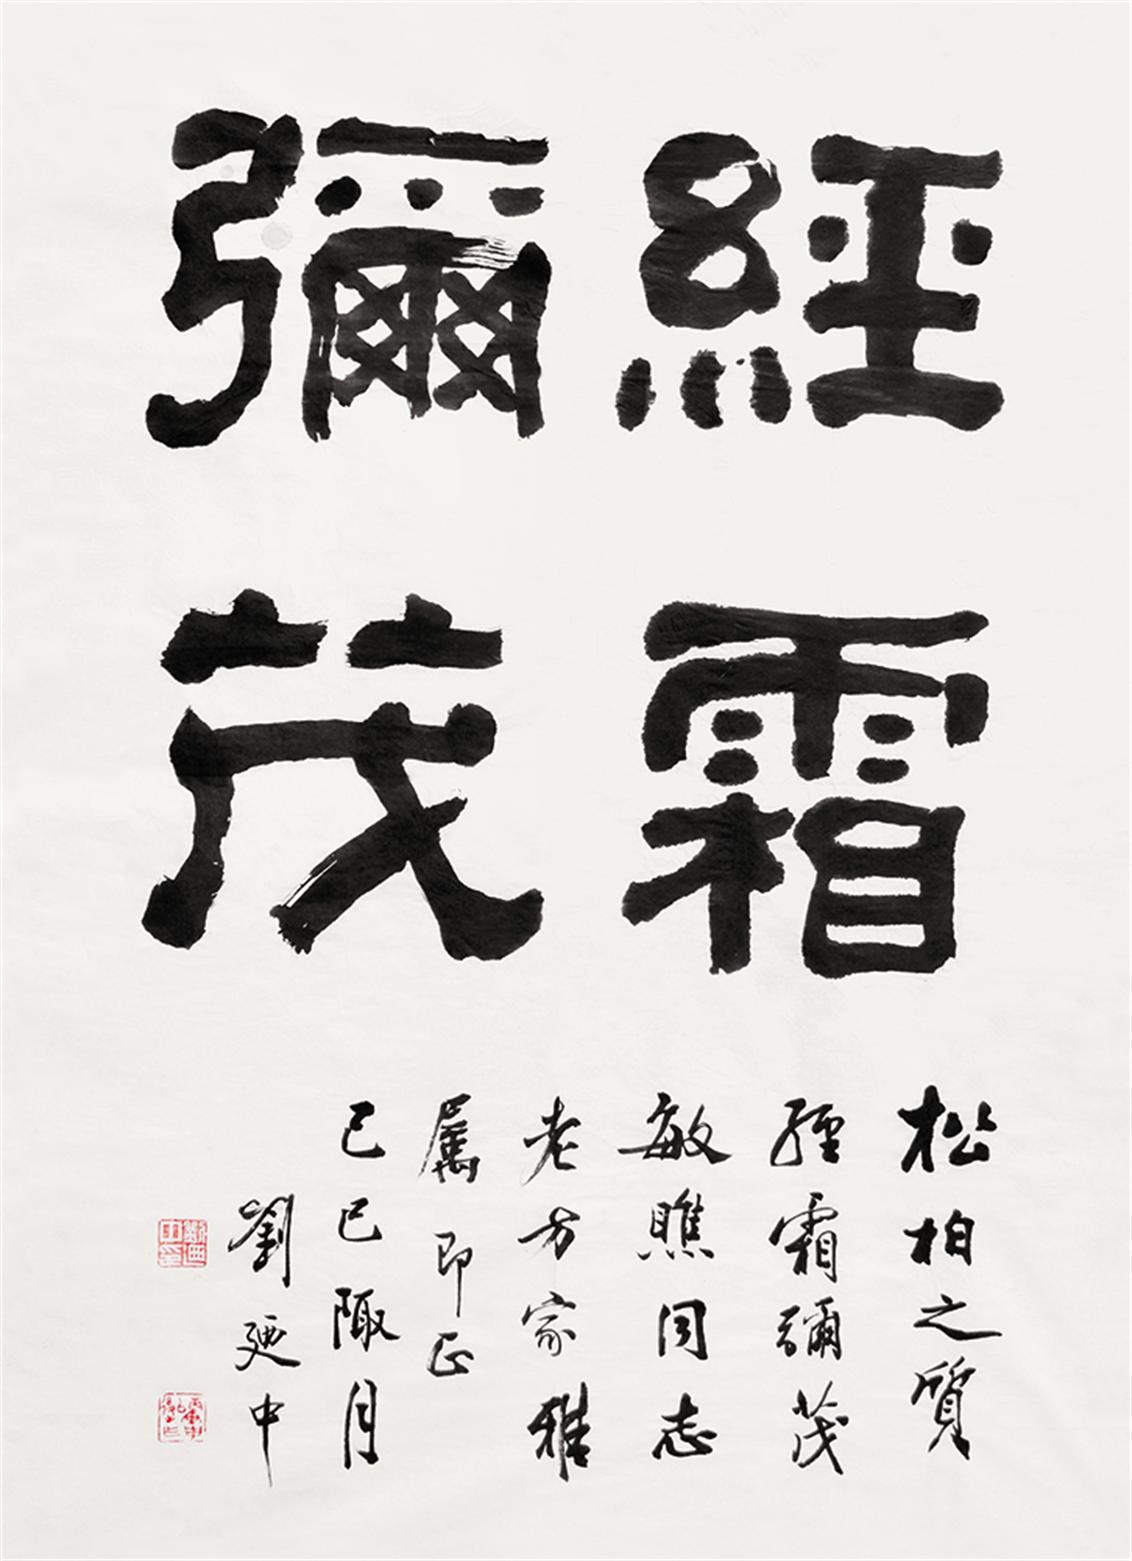 經霜
彌茂
松柏之質
經霜彌茂
敏瞧同志
老方家雅
屬 即正
己巳陬月
劉廼中